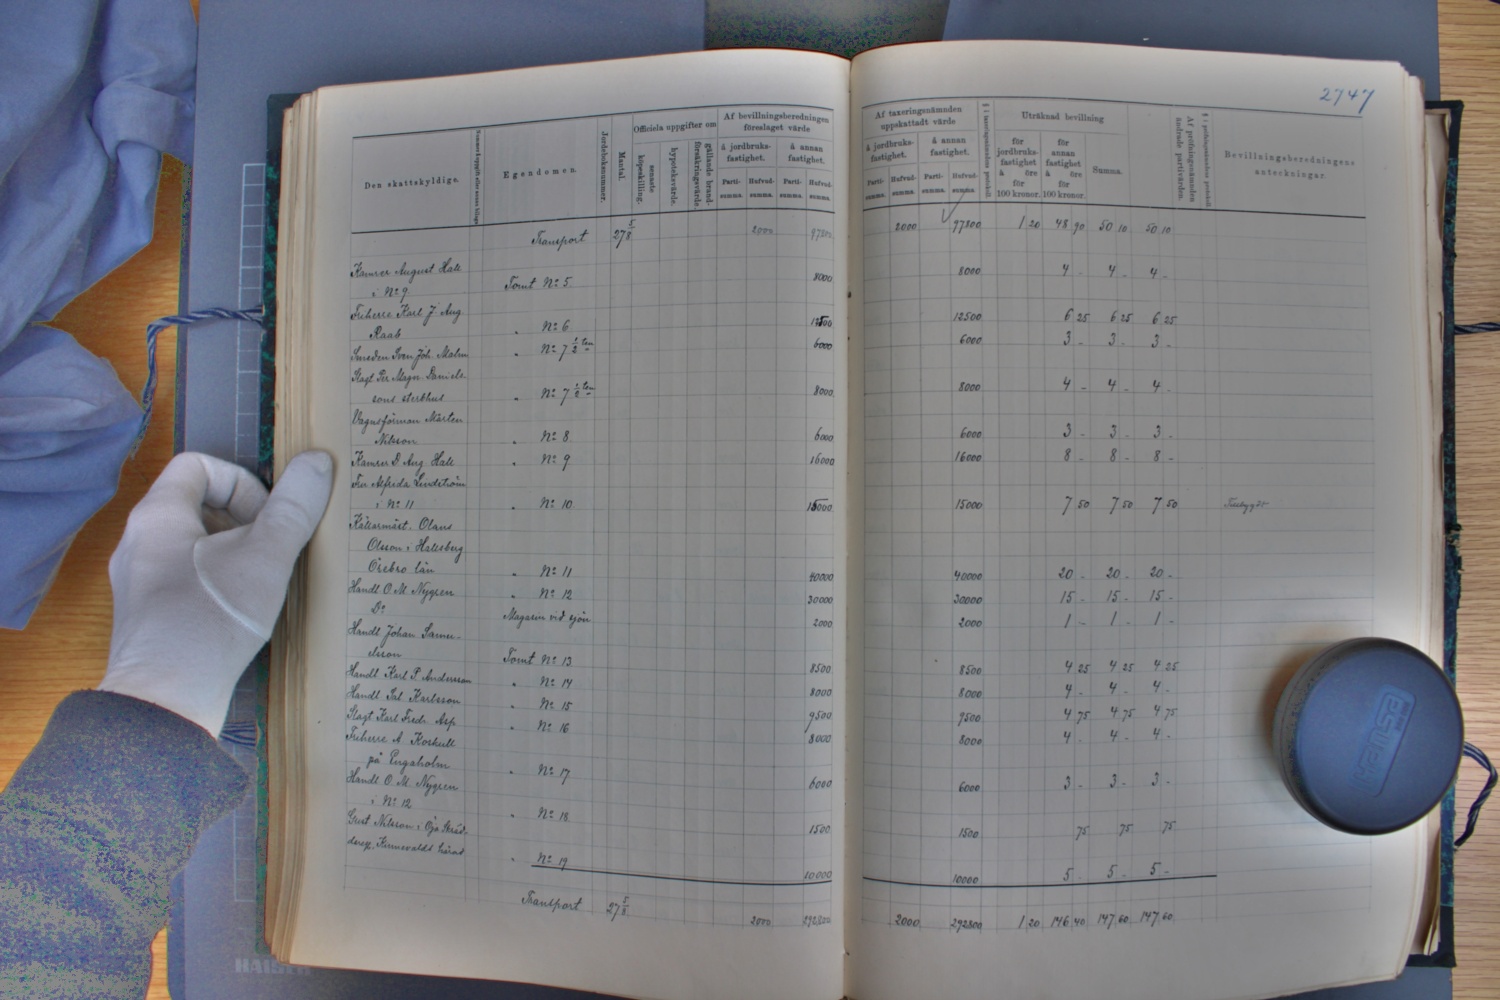 2747
Den skattskyldige.
Egendomen.
Jordeboksnummer.
Mantal.
Officiela uppgifter om
senaste köpeskilling.
hypoteksvärde.
gällande brandförsäkringsvärde.
Af bevillningsberedningen föreslaget värde
å jordbruksfastighet.
å annan fastighet.
Partisumma. Hufvudsumma. Partisumma. Hufvudsumma.
Af taxeringsnämnden uppskattadt värde
å jordbruksfastighet.
å annan fastighet.
Partisumma. Hufvudsumma. Partisumma. Hufvudsumma.
Uträknad bevillning
för jordbruksfastighet à öre för 100 kronor.
för annan fastighet à öre för 100 kronor.
Summa.
Af pröfningsnämnden ändrade partivärden.
Bevillningsberedningens anteckningar.
Transport 27 5/8 2000 97800 2000 97800 1 20 48 90 50 10 50 10
Kamrer August Hall
i No 9 Tomt No 5 8000 8000 4 - 4 - 4 -
Friherre Karl J. Aug.
Raab " No 6 12500 12500 6 25 6 25 6 25
Smeden Sven Joh. Malm " No 7 1/2 ten 6000 6000 3 - 3 - 3 -
Slagt. Per Magn. Daniels-
sons sterbhus " No 7 1/2 ten 8000 8000 4 - 4 - 4 -
Vagnsförman Mårten
Nilsson " No 8 6000 6000 3 - 3 - 3 -
Kamrer D. Aug. Hall " No 9 16000 16000 8 - 8 - 8 -
Fru Alfreda Lindström
i No 11 " No 10 15000 15000 7 50 7 50 7 50
Källarmäst. Olaus
Olsson i Hallsberg
Örebro län " No 11 40000 40000 20 - 20 - 20 -
Handl. O. M. Nygren " No 12 30000 30000 15 - 15 - 15 -
Do Magasin vid sjön 2000 2000 1 - 1 - 1 -
Handl. Johan Samu-
elsson Tomt No 13 8500 8500 4 25 4 25 4 25
Handl. Karl P. Andersson " No 14 8000 8000 4 - 4 - 4 -
Handl. Sal. Karlsson " No 15 9500 9500 4 75 4 75 4 75
Slagt. Karl Fredr. Asp " No 16 8000 8000 4 - 4 - 4 -
Friherre A. Koskull
på Engaholm " No 17 6000 6000 3 - 3 - 3 -
Handl. O. M. Nygren
i No 12 " No 18 1500 1500 75 75 75
Gust. Nilsson i Öjo
Kinnevalds härad " No 19 10000 10000 5 - 5 - 5 -
Transport 27 5/8 2000 292800 2000 292800 1 20 146 40 147 60 147 60
HAISER